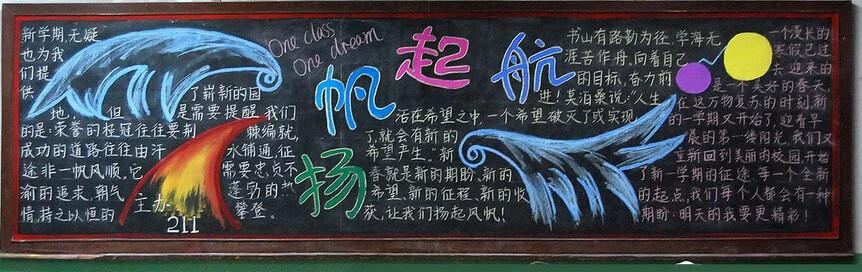 新学期,无疑
也为我
们提
供 了崭新的园
地,但 是需要提醒我们
的是:荣誉的桂冠往往要荆 棘编就,
成功的道路往往由汗 水铺通,征
途非一帆风顺,它 需要忠贞不
渝的追求,朝气 蓬勃的热
情,持之以恒的 攀登。
主办
211
One class
One dream
扬帆起航
书山有路勤为径,学海无
涯苦作舟,向着自己
的目标,奋力前
进!莫泊桑说:“人生
活在希望之中,一个希望破灭了或实现
了,就会有新的
希望产生。”新
春就是新的期盼、新的
希望、新的征程、新的收
获,让我们扬起风帆!
一个漫长的
寒假已过
去,迎来的
是一个美好的春天,
在这万物复苏的时刻,新
的一学期又开始了,迎着早
晨的第一缕阳光,我们又
重新回到美丽的校园,开始
了新一学期的征途,每一个全新
的起点,我们每个人都会有一种
期盼:明天的我要更精彩!